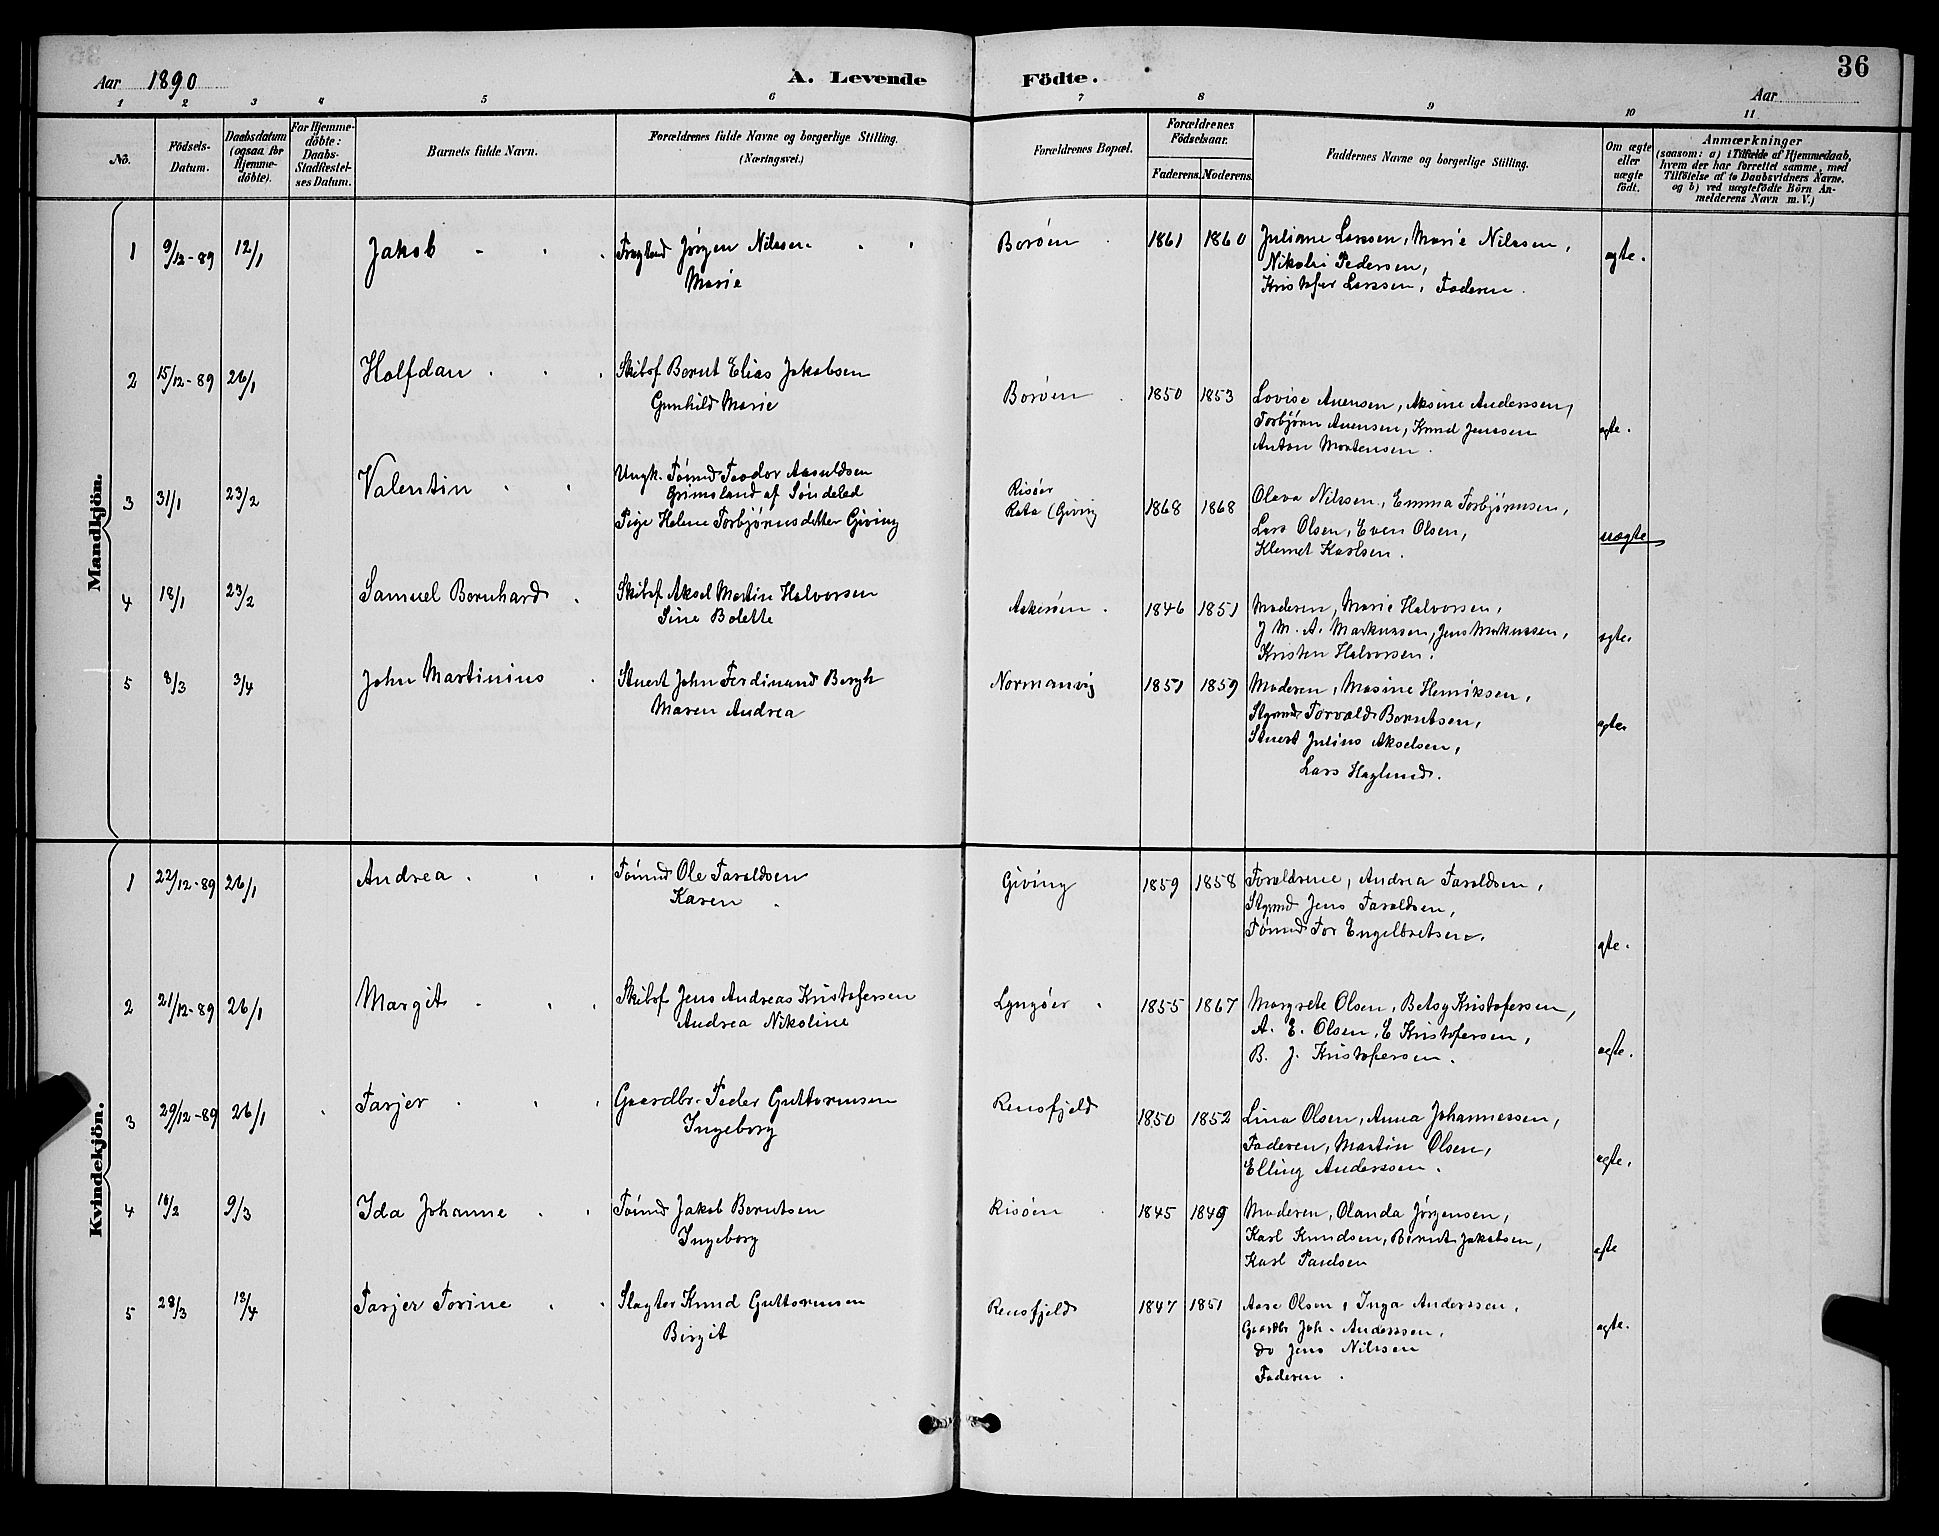 Aar 1890
A. Levende Födte.
36
Aar
1 2 3 4 5 6 7 8 9 10 11
No.
Födsels-Datum.
Daabsdatum (ogsaa for Hjemme-döbte).
For Hjemme-döbte: Daabs-Stadfæstel-ses Datum.
Barnets fulde Navn.
Forældrenes fulde Navne og borgerlige Stilling. (Næringsvei.)
Forældrenes Bopæl.
Forældrenes Födselsaar.
Faderens. Moderens.
Faddernes Navne og borgerlige Stilling.
Om ægte eller uægte födt.
Anmærkninger
(saasom: a) i Tilfælde af Hjemmedaab, hvem der har forrettet samme, med Tilföielse af to Daabsvidners Navne. og b) ved uægtefödte Börn An-melderens Navn m. V.)
Mandkjön.
1 9/12-89 12/1 Jakob Jørgen Nilssen Borøen 1861 1860 Juliane Larssen, Marie Nilssen, ægte.
Marie Nikolai Pedersen,
Kristofer Larssen, Faderen.
2 15/12-89 26/1 Halfdan Skibsf Bernt Elias Jakobsen Borøen 1850 1853 Lovise Auensen, Aksine Anderssen, ægte.
Gunhild Marie Torbjørn Auensen, Knud Jenssen
Anton Mortensen.
3 31/1 23/2 Valentin Ungk. Tømmd Teodor Aasuldsen Risøer 1868 1868 Olava Nilssen, Emma Torbjørnsen, uægte
Grimsland af Søndeled Rota (Giving Lars Olsen, Even Olsen,
Pige Helene Torbjørnsdatter Giving Klemet Karlsen.
4 18/1 23/2 Samuel Bernhard Skibsf Aksel Martin Halvorsen Askerøen 1846 1851 Moderen, Marie Halvorsen, ægte.
Sine Bolette J. M. A. Markussen, Jens Markussen,
Kristen Halvorsen.
5 8/3 3/4 John Martinius Stuert John Ferdinand Bergh Normanvig 1851 1859 Moderen, Masine Henriksen, ægte
Maren Andrea Stymd Torvald Berntsen,
Stuert Julius Akselsen,
Lars Haglund.
Kvindekjön.
1 22/12-89 26/1 Andrea Tømmd Ole Taraldsen Giving 1859 1858 Forældrene, Andrea Taraldsen, ægte.
Karen Stymd Jens Taraldsen,
Tømmd Tor Engelbretsen.
2 21/12-89 26/1 Margit Skibsf Jens Andreas Kristofersen Lyngøer 1855 1867 Margrete Olsen, Betsy Kristofersen, ægte.
Andrea Nikoline A. E. Olsen, E Kristofersen,
B. J. Kristofersen.
3 29/12-89 26/1 Tarjer Gaardbr. Peder Guttormsen Rensfjeld 1850 1852 Lina Olsen, Anna Johannessen, ægte.
Ingeborg Faderen, Martin Olsen,
Elling Anderssen.
4 9/3 Ida Johanne Tømmd Jakob Berntsen Risøen 1845 1849 Moderen, Olanda Jørgensen, ægte
Ingeborg Karl Knudsen, Bernt Jakobsen,
Karl
5 28/3 13/4 Tarjer Torine Slagter Knud Guttormsen Rensfjeld 1847 1851 Aase Olsen, Inga Anderssen, ægte.
Birgit Gaardbr Joh. Anderssen,
do Jens Nilssen
Faderen.